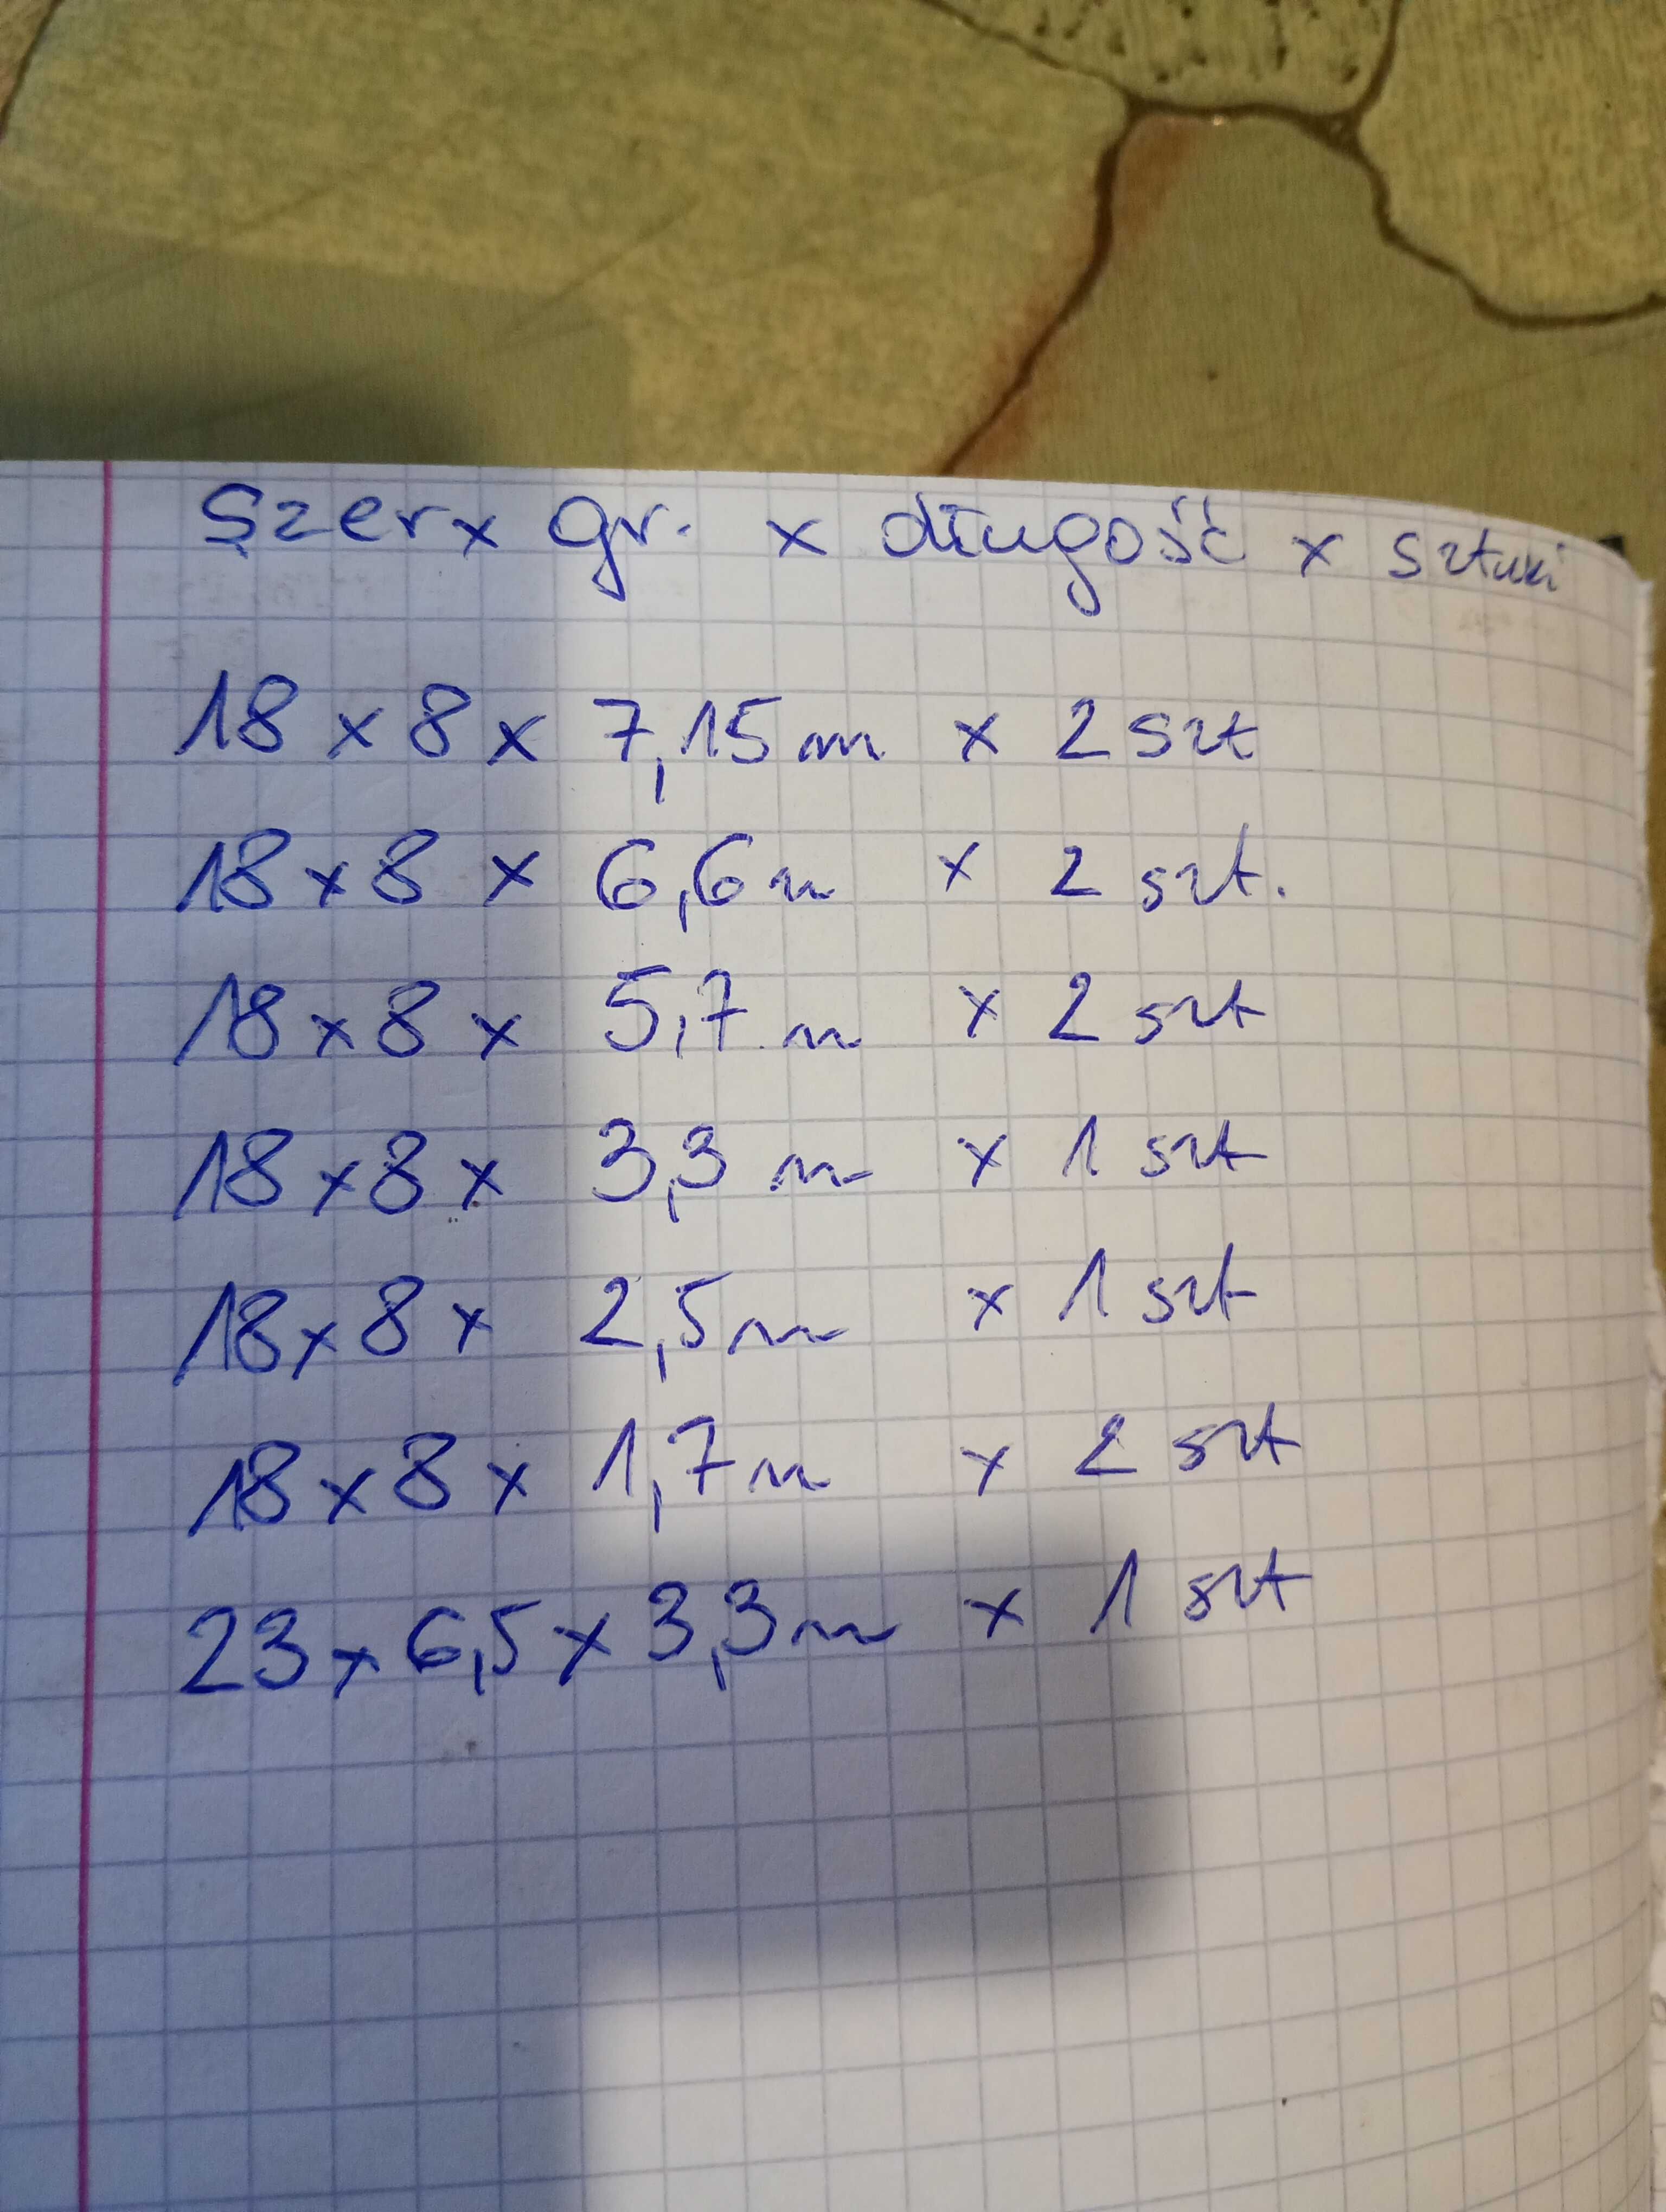 Szer x gr. x długość x sztuki
18 x 8 x 7,15 m x 2 szt
18 x 8 x 6,6 m x 2 szt.
18 x 8 x 5,7 m x 2 szt
18 x 8 x 3,3 m x 1 szt
18 x 8 x 2,5 m x 1 szt
18 x 8 x 1,7 m x 2 szt
23 x 6,5 x 3,3 m x 1 szt